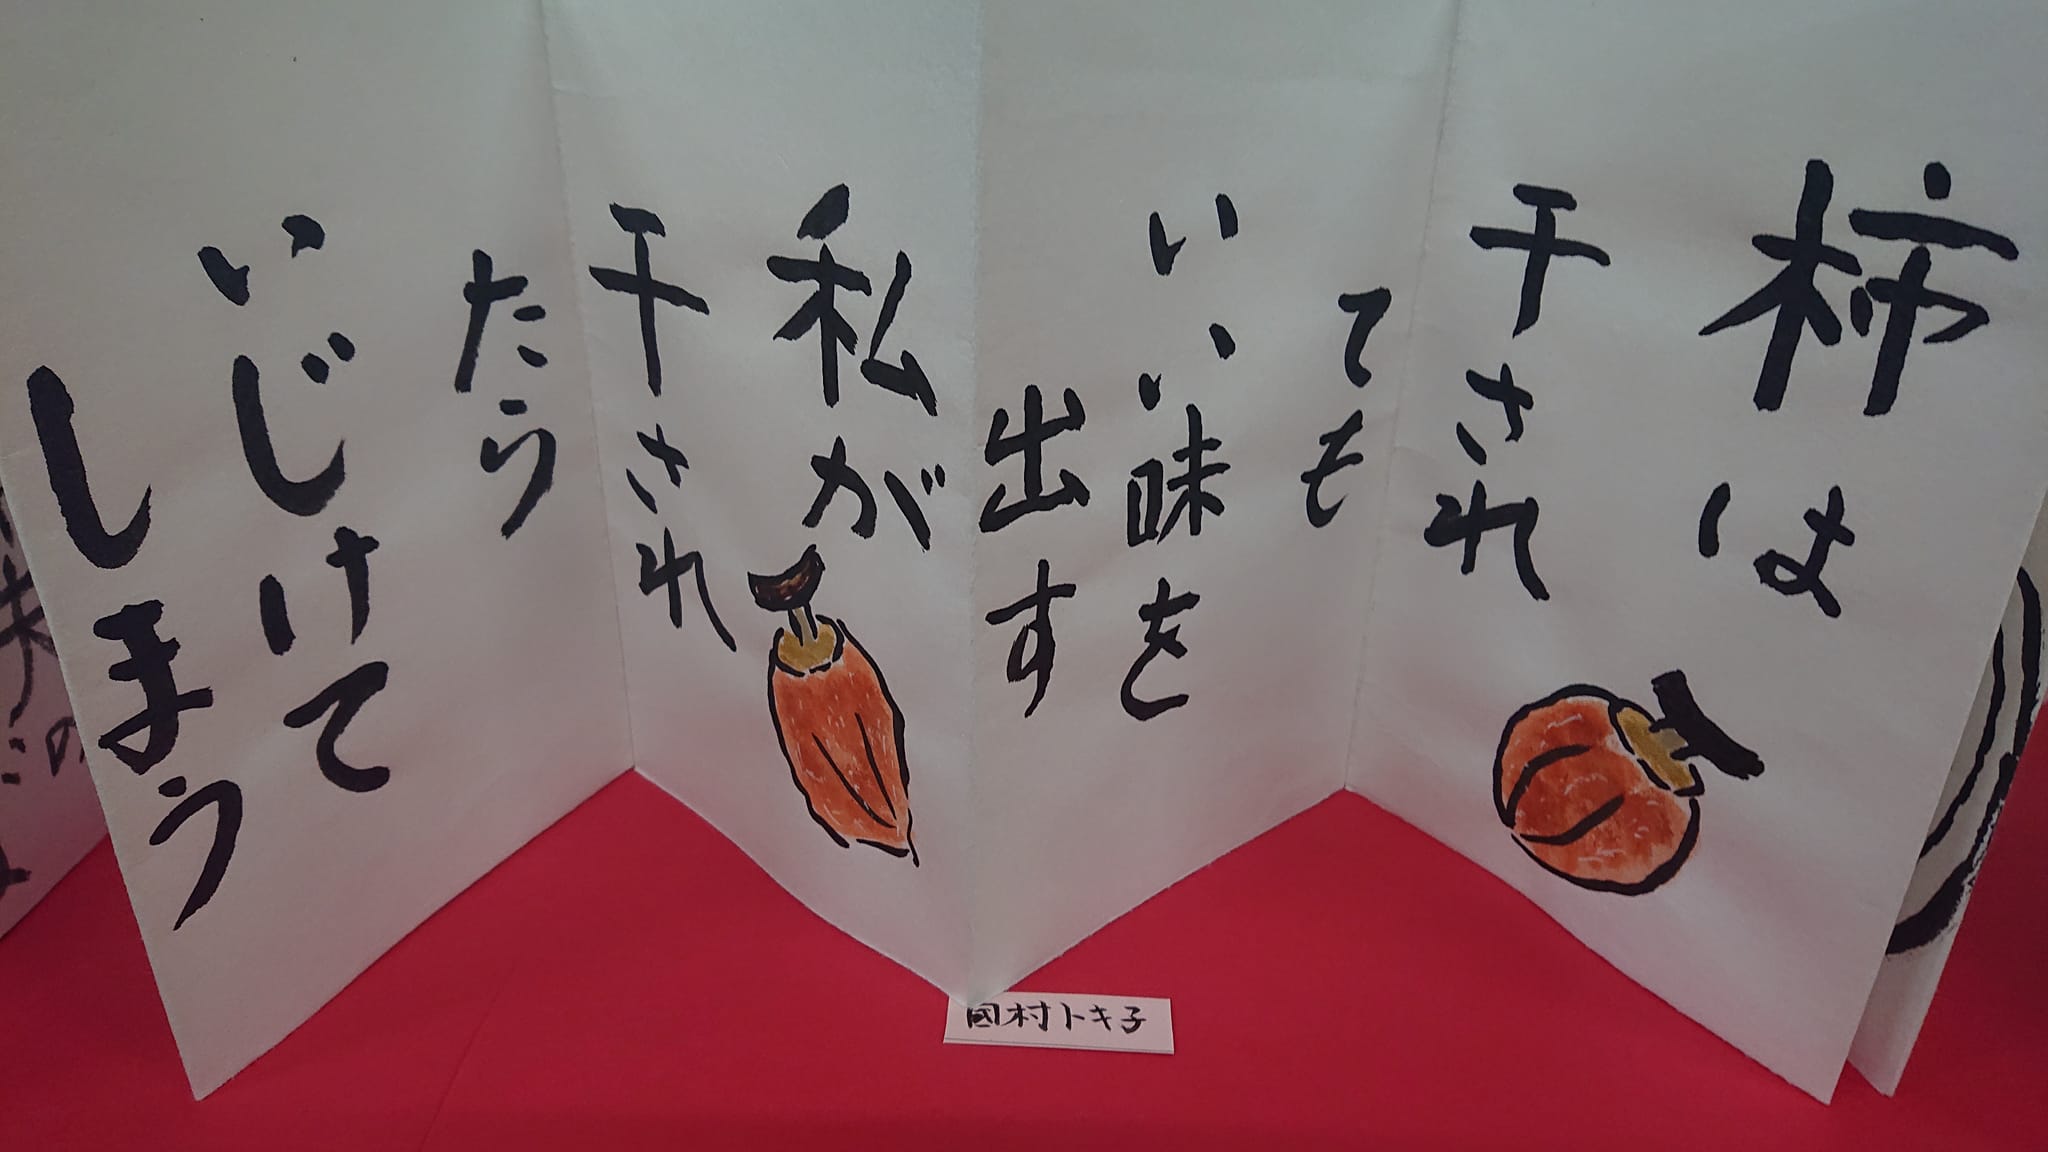 柿は
干され
ても
いい味を
出す
私が
干され
たら
いじけて
しまう
國村トキ子